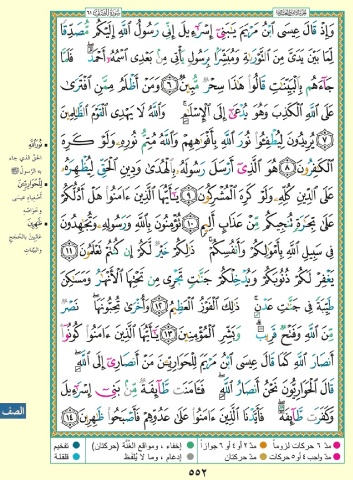 وَإِذْ قَالَ عِيسَى ابْنُ مَرْيَمَ يَٰبَنِىٓ إِسْرَٰٓءِيلَ إِنِّى رَسُولُ ٱللَّهِ إِلَيْكُم مُّصَدِّقًا
لِّمَا بَيْنَ يَدَىَّ مِنَ ٱلتَّوْرَىٰةِ وَمُبَشِّرًۢا بِرَسُولٍ يَأْتِى مِنۢ بَعْدِى ٱسْمُهُۥٓ أَحْمَدُ ۖ فَلَمَّا
جَآءَهُم بِٱلْبَيِّنَٰتِ قَالُوا۟ هَٰذَا سِحْرٌ مُّبِينٌ ﴿٦﴾ وَمَنْ أَظْلَمُ مِمَّنِ ٱفْتَرَىٰ
عَلَى ٱللَّهِ ٱلْكَذِبَ وَهُوَ يُدْعَىٰٓ إِلَى ٱلْإِسْلَٰمِ ۚ وَٱللَّهُ لَا يَهْدِى ٱلْقَوْمَ ٱلظَّٰلِمِينَ
﴿٧﴾ يُرِيدُونَ لِيُطْفِـُٔوا۟ نُورَ ٱللَّهِ بِأَفْوَٰهِهِمْ وَٱللَّهُ مُتِمُّ نُورِهِۦ وَلَوْ كَرِهَ
ٱلْكَٰفِرُونَ ﴿٨﴾ هُوَ ٱلَّذِىٓ أَرْسَلَ رَسُولَهُۥ بِٱلْهُدَىٰ وَدِينِ ٱلْحَقِّ لِيُظْهِرَهُۥ
عَلَى ٱلدِّينِ كُلِّهِۦ وَلَوْ كَرِهَ ٱلْمُشْرِكُونَ ﴿٩﴾ يَٰٓأَيُّهَا ٱلَّذِينَ ءَامَنُوا۟ هَلْ أَدُلُّكُمْ
عَلَىٰ تِجَٰرَةٍ تُنجِيكُم مِّنْ عَذَابٍ أَلِيمٍ ﴿١٠﴾ تُؤْمِنُونَ بِٱللَّهِ وَرَسُولِهِۦ وَتُجَٰهِدُونَ
فِى سَبِيلِ ٱللَّهِ بِأَمْوَٰلِكُمْ وَأَنفُسِكُمْ ۚ ذَٰلِكُمْ خَيْرٌ لَّكُمْ إِن كُنتُمْ تَعْلَمُونَ ﴿١١﴾
يَغْفِرْ لَكُمْ ذُنُوبَكُمْ وَيُدْخِلْكُمْ جَنَّٰتٍ تَجْرِى مِن تَحْتِهَا ٱلْأَنْهَٰرُ وَمَسَٰكِنَ
طَيِّبَةً فِى جَنَّٰتِ عَدْنٍ ۚ ذَٰلِكَ ٱلْفَوْزُ ٱلْعَظِيمُ ﴿١٢﴾ وَأُخْرَىٰ تُحِبُّونَهَا ۖ نَصْرٌ
مِّنَ ٱللَّهِ وَفَتْحٌ قَرِيبٌ ۗ وَبَشِّرِ ٱلْمُؤْمِنِينَ ﴿١٣﴾ يَٰٓأَيُّهَا ٱلَّذِينَ ءَامَنُوا۟ كُونُوٓا۟
أَنصَارَ ٱللَّهِ كَمَا قَالَ عِيسَى ٱبْنُ مَرْيَمَ لِلْحَوَارِيِّـۧنَ مَنْ أَنصَارِىٓ إِلَى ٱللَّهِ ۖ
قَالَ ٱلْحَوَارِيُّونَ نَحْنُ أَنصَارُ ٱللَّهِ ۖ فَـَٔامَنَت طَّآئِفَةٌ مِّنۢ بَنِىٓ إِسْرَٰٓءِيلَ
وَكَفَرَت طَّآئِفَةٌ ۖ فَأَيَّدْنَا ٱلَّذِينَ ءَامَنُوا۟ عَلَىٰ عَدُوِّهِمْ فَأَصْبَحُوا۟ ظَٰهِرِينَ ﴿١٤﴾
نُورَ اللَّهِ
الحق الذي جاء
به الرسول ﷺ
لِلْحَوَارِيِّينَ
أصفياء عيسى
وخواصه
ظَاهِرِينَ
غالبين بالحجج
والبينات
الصف
مدّ ٦ حركات لزوماً
مدّ ٢ أو ٤ أو ٦ جوازاً
إخفاء، ومواقع الغُنَّة (حركتان)
تفخيم
مدّ واجب ٤ أو ٥ حركات
مدّ حركتان
إدغام، وما لا يُلفَظ
قلقلة
٥٥٢